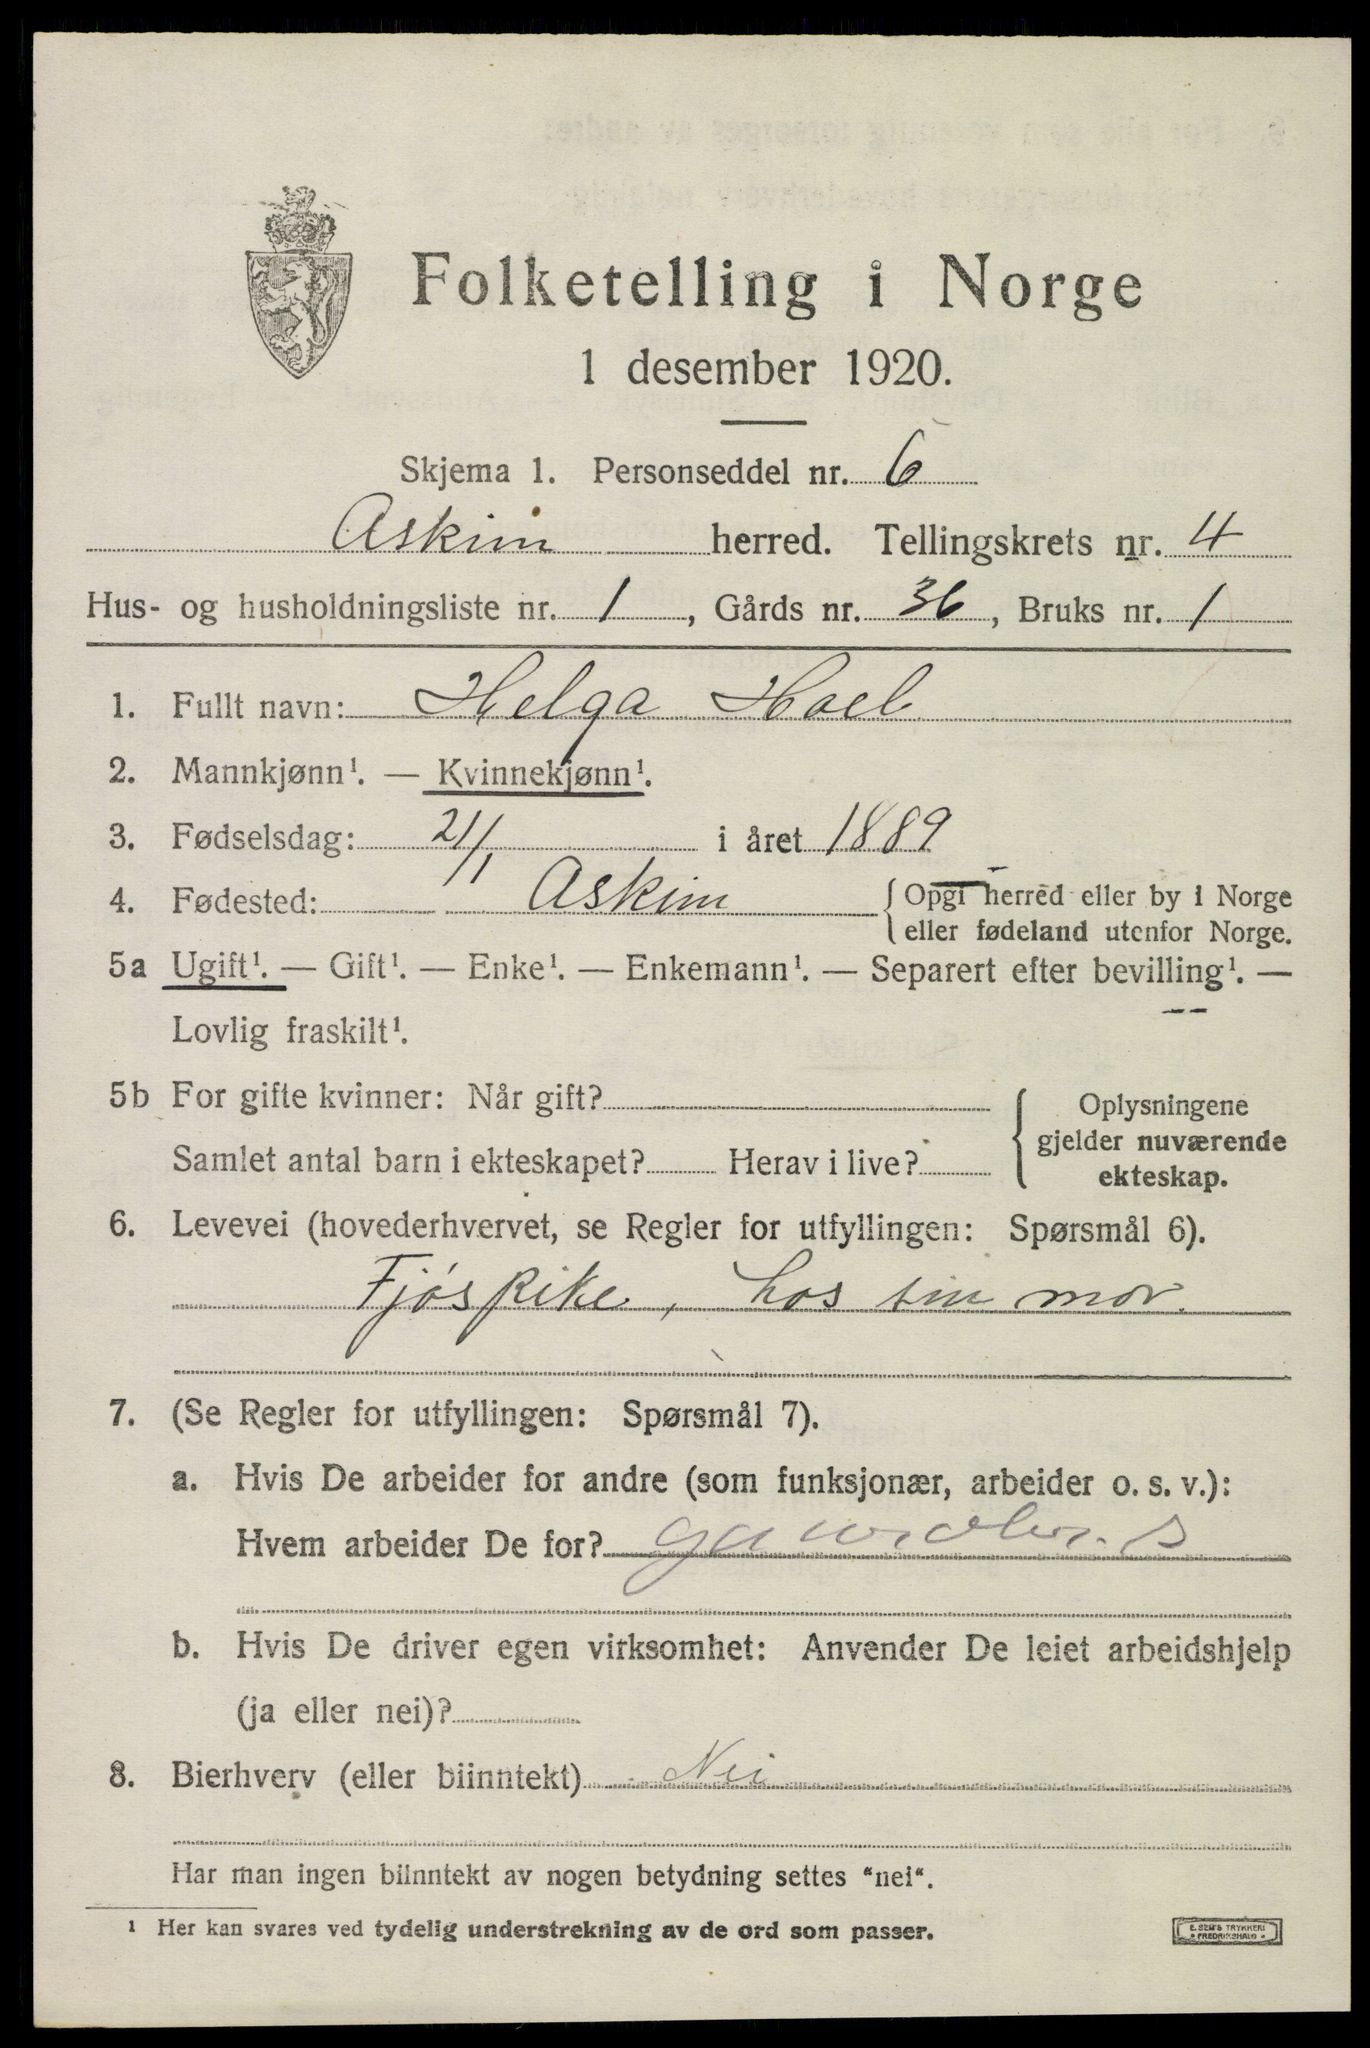 Folketelling i Norge
1 desember 1920.
Skjema 1. Personseddel nr. 6
Askim herred. Tellingskrets nr. 4
Hus- og husholdningsliste nr. 1, Gårds nr. 36, Bruks nr. 1
1. Fullt navn: Helga Hoel
2. Mannkjønn¹. — Kvinnekjønn¹.
3. Fødselsdag: 21/1 i året 1889
4. Fødested: Askim { Opgi herred eller by i Norge
eller fødeland utenfor Norge.
5a Ugift¹. — Gift¹. — Enke¹. — Enkemann¹. — Separert efter bevilling¹. —
Lovlig fraskilt¹.
5b For gifte kvinner: Når gift?
Samlet antal barn i ekteskapet? Herav i live?
{ Oplysningene
gjelder nuværende
ekteskap.
6. Levevei (hovederhvervet, se Regler for utfyllingen: Spørsmål 6).
Fjøspike, hos sin mor.
7. (Se Regler for utfyllingen: Spørsmål 7).
a. Hvis De arbeider for andre (som funksjonær, arbeider o. s. v.):
Hvem arbeider De for?
b. Hvis De driver egen virksomhet: Anvender De leiet arbeidshjelp
(ja eller nei)?
8. Bierhverv (eller biinntekt) Nei
Har man ingen biinntekt av nogen betydning settes “nei“.
¹ Her kan svares ved tydelig understrekning av de ord som passer.
E. SEM'S TRYKKERI
• FREDRIKSHALD •